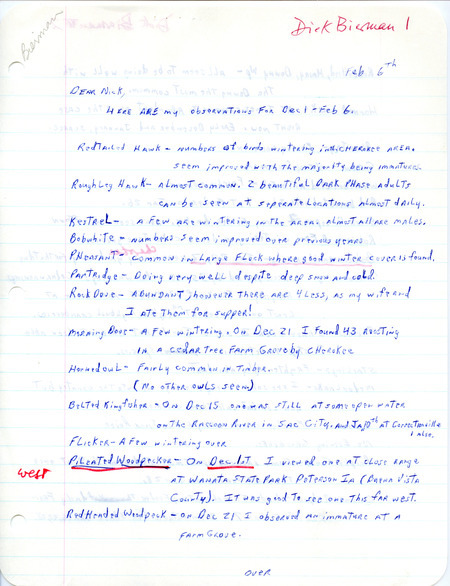 Bierman
Dick Bierman 1
Feb. 6th
DEAR Nick,
HERE ARE my observations For Dec 1 - Feb 6.
RedTailed Hawk - numbers of birds wintering in the CHEROKEE AREA
seem improved with the majority being immatures.
Rough Leg Hawk - Almost common. 2 beautiful DARK PHASE adults
can be seen at seperate locations almost daily.
Kestrel - A few are wintering in the area. almost all are males.
Bobwhite - numbers seem improved over previous years
PHeasant - common in Large Flock where good winter cover is found.
Partridge - Doing very well despite deep snow and cold.
Rock Dove - ABUNDANT, however there are 4 less, as my wife and
I ate them for supper!
mourning Dove - A few wintering. On Dec 21 I found 43 roosting
in a cedar tree Farm Grove by Cherokee
Horned owl - Fairly common in Timber.
(No other owls seen)
Belted Kingfisher - On Dec 15 one was still at some open water
on the Raccoon River in Sac City. And Ja 10th at Correctionville
1 alse.
Flicker - A Few wintering over
west
Pileated Woodpecker - On Dec. 1st I viewed one at close range
at Wanata State Park Peterson Ia (Buena Vista
County). It was good to see one this far west.
Red Headed Woodpeck - on Dec 21 I observed an immature at a
Farm Grove.
over